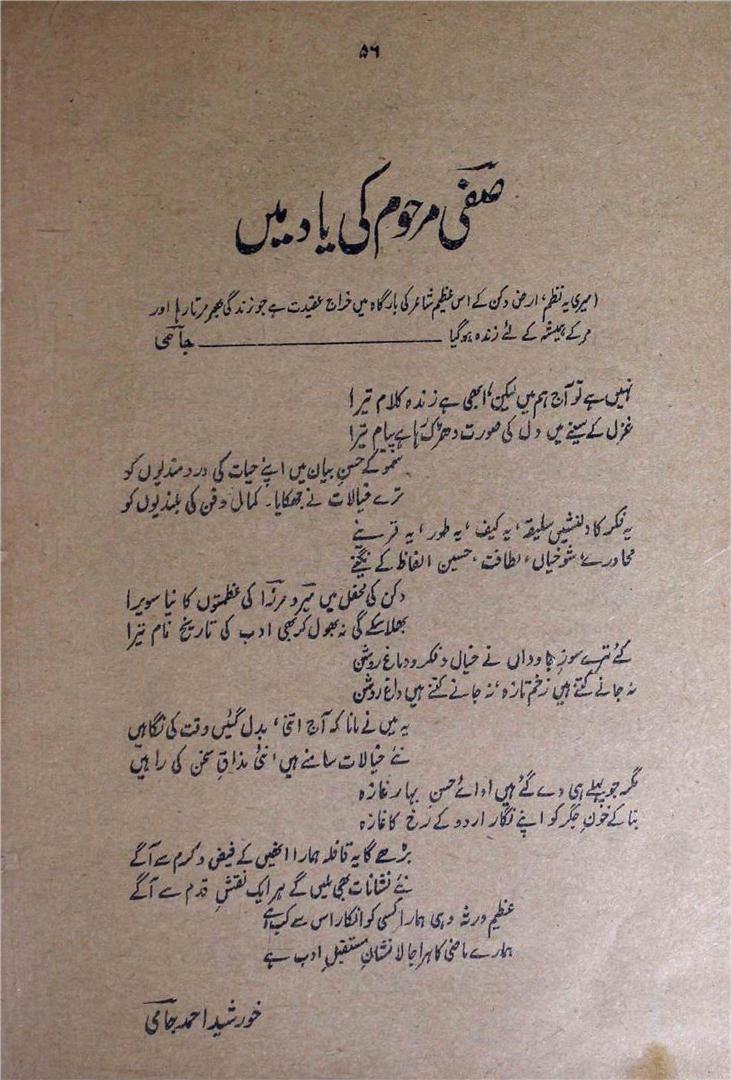 ۵۶
صفی مرحوم کی یاد میں
(میری یہ نظم، ارض دکن کے اس عظیم شاعر کی بارگاہ میں خراج عقیدت ہے جو زندگی بھر مرتا رہا اور
مر کے ہمیشہ کے لئے زندہ ہو گیا ــــــــ جامی
نہیں ہے تو آج ہم میں لیکن، ابھی ہے زندہ کلام تیرا
غزل کے سینے میں دل کی صورت دھڑک رہا ہے پیام تیرا
سمو کے حسنِ بیان میں اپنے حیات کی درد مندیوں کو
ترے خیالات نے جھکایا۔ کمال و فن کی بلندیوں کو
یہ فکر کا دلنشیں سلیقہ، یہ کیف، یہ طور، یہ قرینے
محاورے، شوخیاں، لطافت، حسین الفاظ کے نگینے
دکن کی محفل میں میر و مرزا کی عظمتوں کا نیا سویرا
بھلا سکے گی نہ بھول کر بھی ادب کی تاریخ نام تیرا
کئے ترے سوزِ جاوداں نے خیال و فکر و دماغ روشن
نہ جانے کتنے ہیں زخم تازہ، نہ جانے کتنے ہیں داغ روشن
یہ میں نے مانا کہ آج اتنی، بدل گئیں وقت کی نگاہیں
نئے خیالات سامنے ہیں، نئی مذاقِ سخن کی راہیں
مگر جو پہلے ہی دے گئے ہیں ادائے حسنِ بہار تازہ
بنا کے خونِ جگر کو اپنے نگارِ اردو کے رخ کا غازہ
بڑھے گا یہ قافلہ ہمارا انھیں کے فیض و کرم سے آگے
نئے نشانات بھی ملیں گے ہر ایک نقشِ قدم سے آگے
عظیم ورثہ وہی ہمارا کسی کو انکار اس سے کب ہے
ہمارے ماضی کا ہر اجالا نشانِ مستقبلِ ادب ہے
خورشید احمد جامی